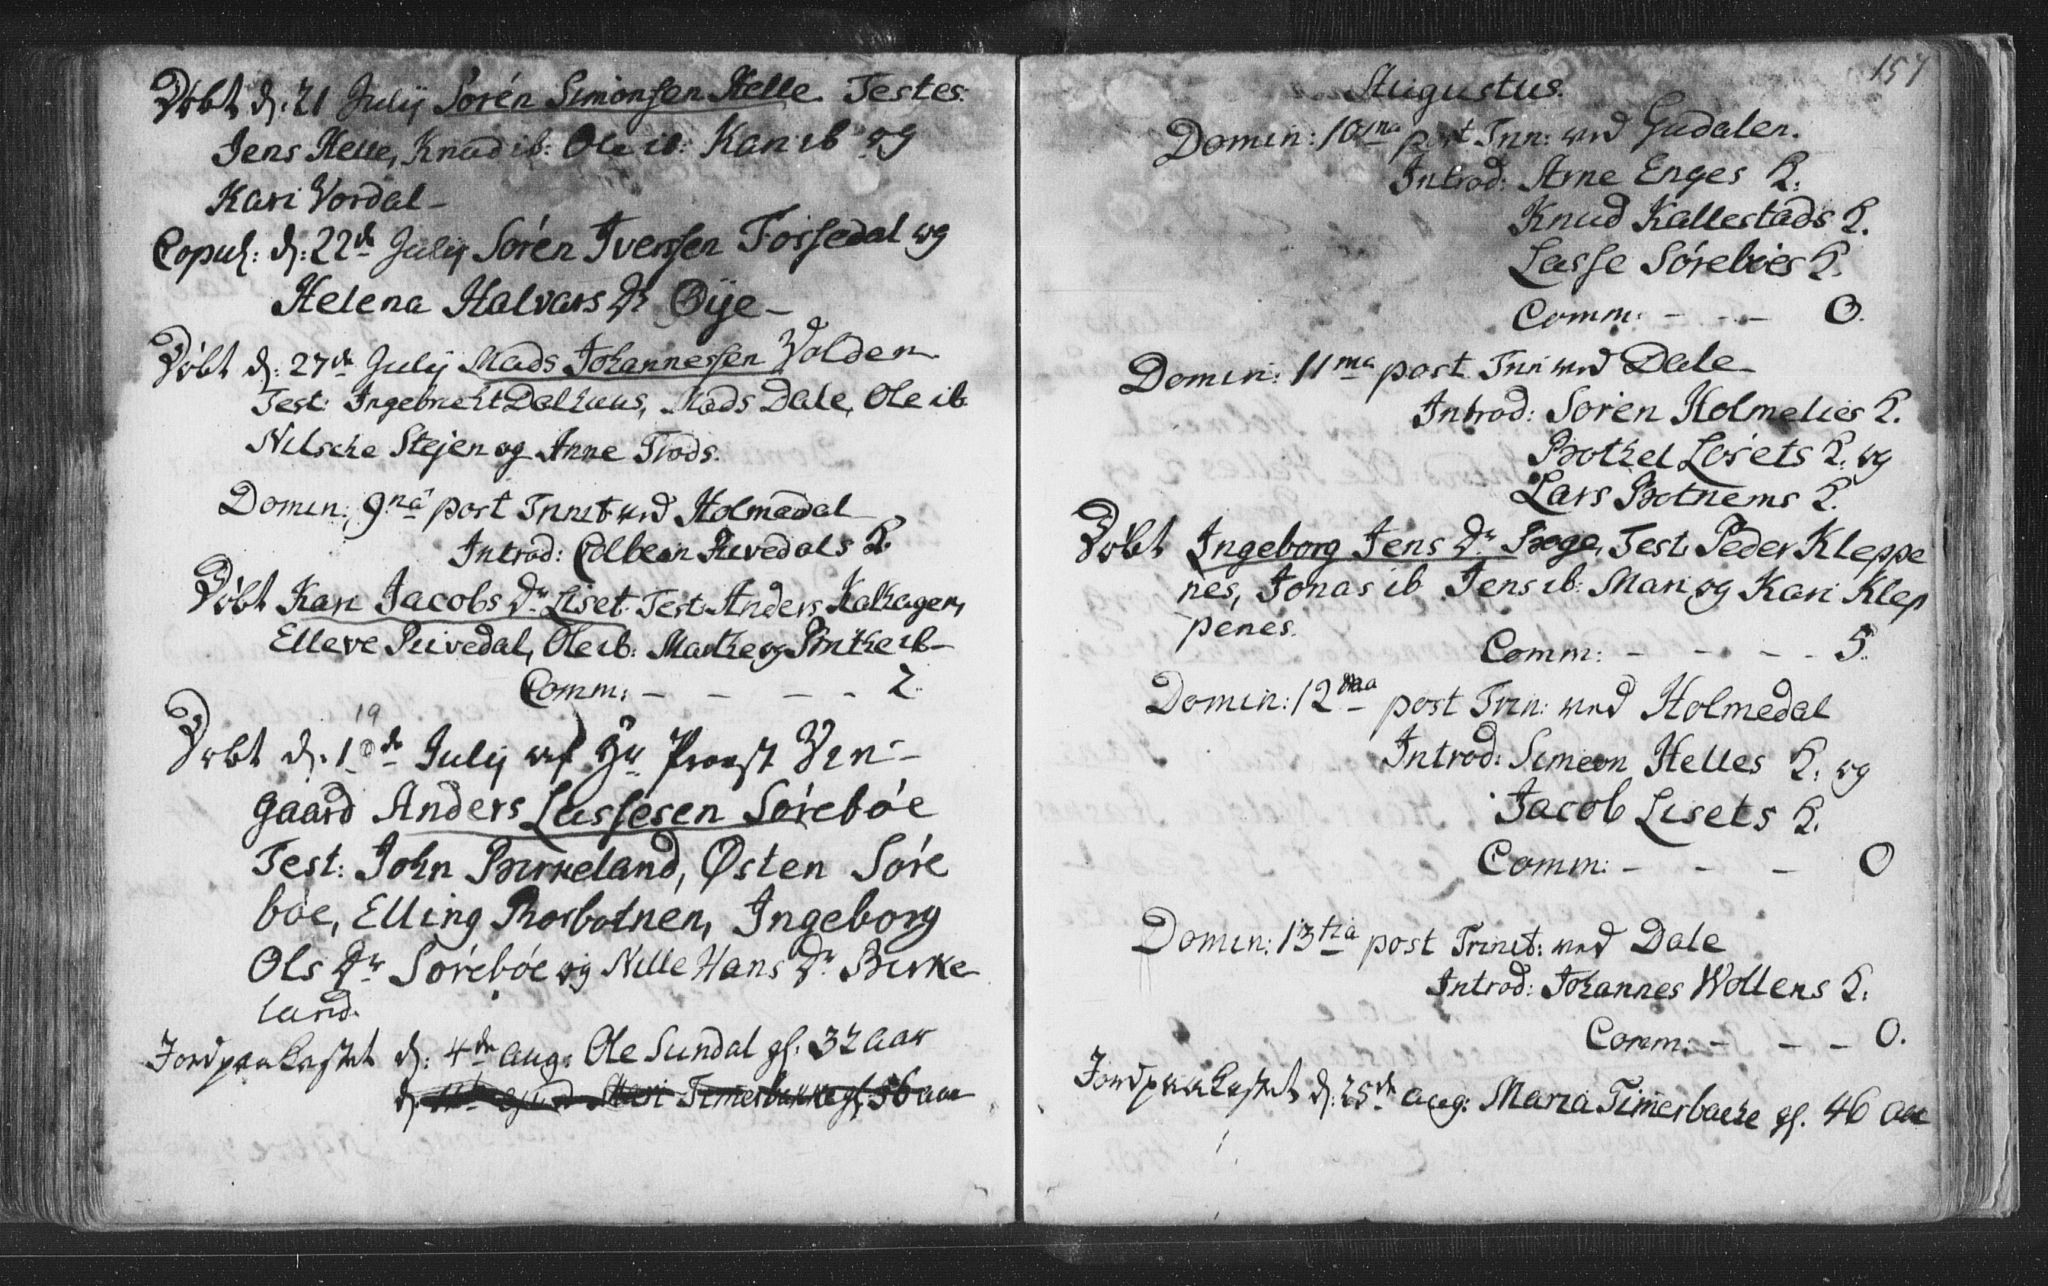 Døbt d: 21 July Sørén Simonsen Helle Testes:
Jens Helle, Knud ib: Ole ib: Kari ib og
Kari Vordal-
Copul: d: 22de July Søren Iversen Fossedal og
Helena Halvars Dr Øÿe-
Døbt d: 27de July Mads Johannessen Volden
Test: Ingebricht Dalhuus, Mads Dale, Ole ib
Nilsche Stejen og Anne Trods.
Domin: 9na post Trinit: ved Holmedal
Introd: Colbeen Rivedals K.
Døbt Kari Jacobs Dr Liset Test: Anders Kalhagen,
Elleve Rivedal, Ole ib: Marthe og Birthe ib-
Comm: - - - - 2.
19
Døbt d. 10de July af Hr Provst Ven-
gaard Anders Lassesen Sørebøe
Test: John Birkeland, Østen Søre
bøe, Elling Morbotnen, Ingeborg
Ols Dr Sørebøe og Nille Hans Dr Birke
land.
Jordpaakastet d: 4de aug: Ole Sundal gl. 32 aar
d: Mari Timerbakke gl. 46 aar
157
Augustus.
Domin: 10ma post Trin: ved Gudalen.
Introd: Arne Enges K:
Knud Kallestads K.
Lasse Sørebøes K.
Comm: - - - 0.
Domin: 11ma post Trin ved Dale
Introd: Søren Holmelies K.
Bothel Løsets K. og
Lars Botnems K.
Døbt Ingeborg Jens Dr Boge, Test: Peder Kleppe
nes, Jonas ib Jens ib: Mari og Kari Klep
penes.
Comm: - - - - 5.
Domin: 12ma post Trin: ved Holmedal
Introd: Simeon Helles K. og
Jacob Lisets K.
Comm: - - - 0
Domin: 13tia post Trinit: ved Dale
Introd: Johannes Wollens K:
Comm: - - - 0.
Jordpaakastet d: 25de aug: Maria Timerbacke gl. 46 aar